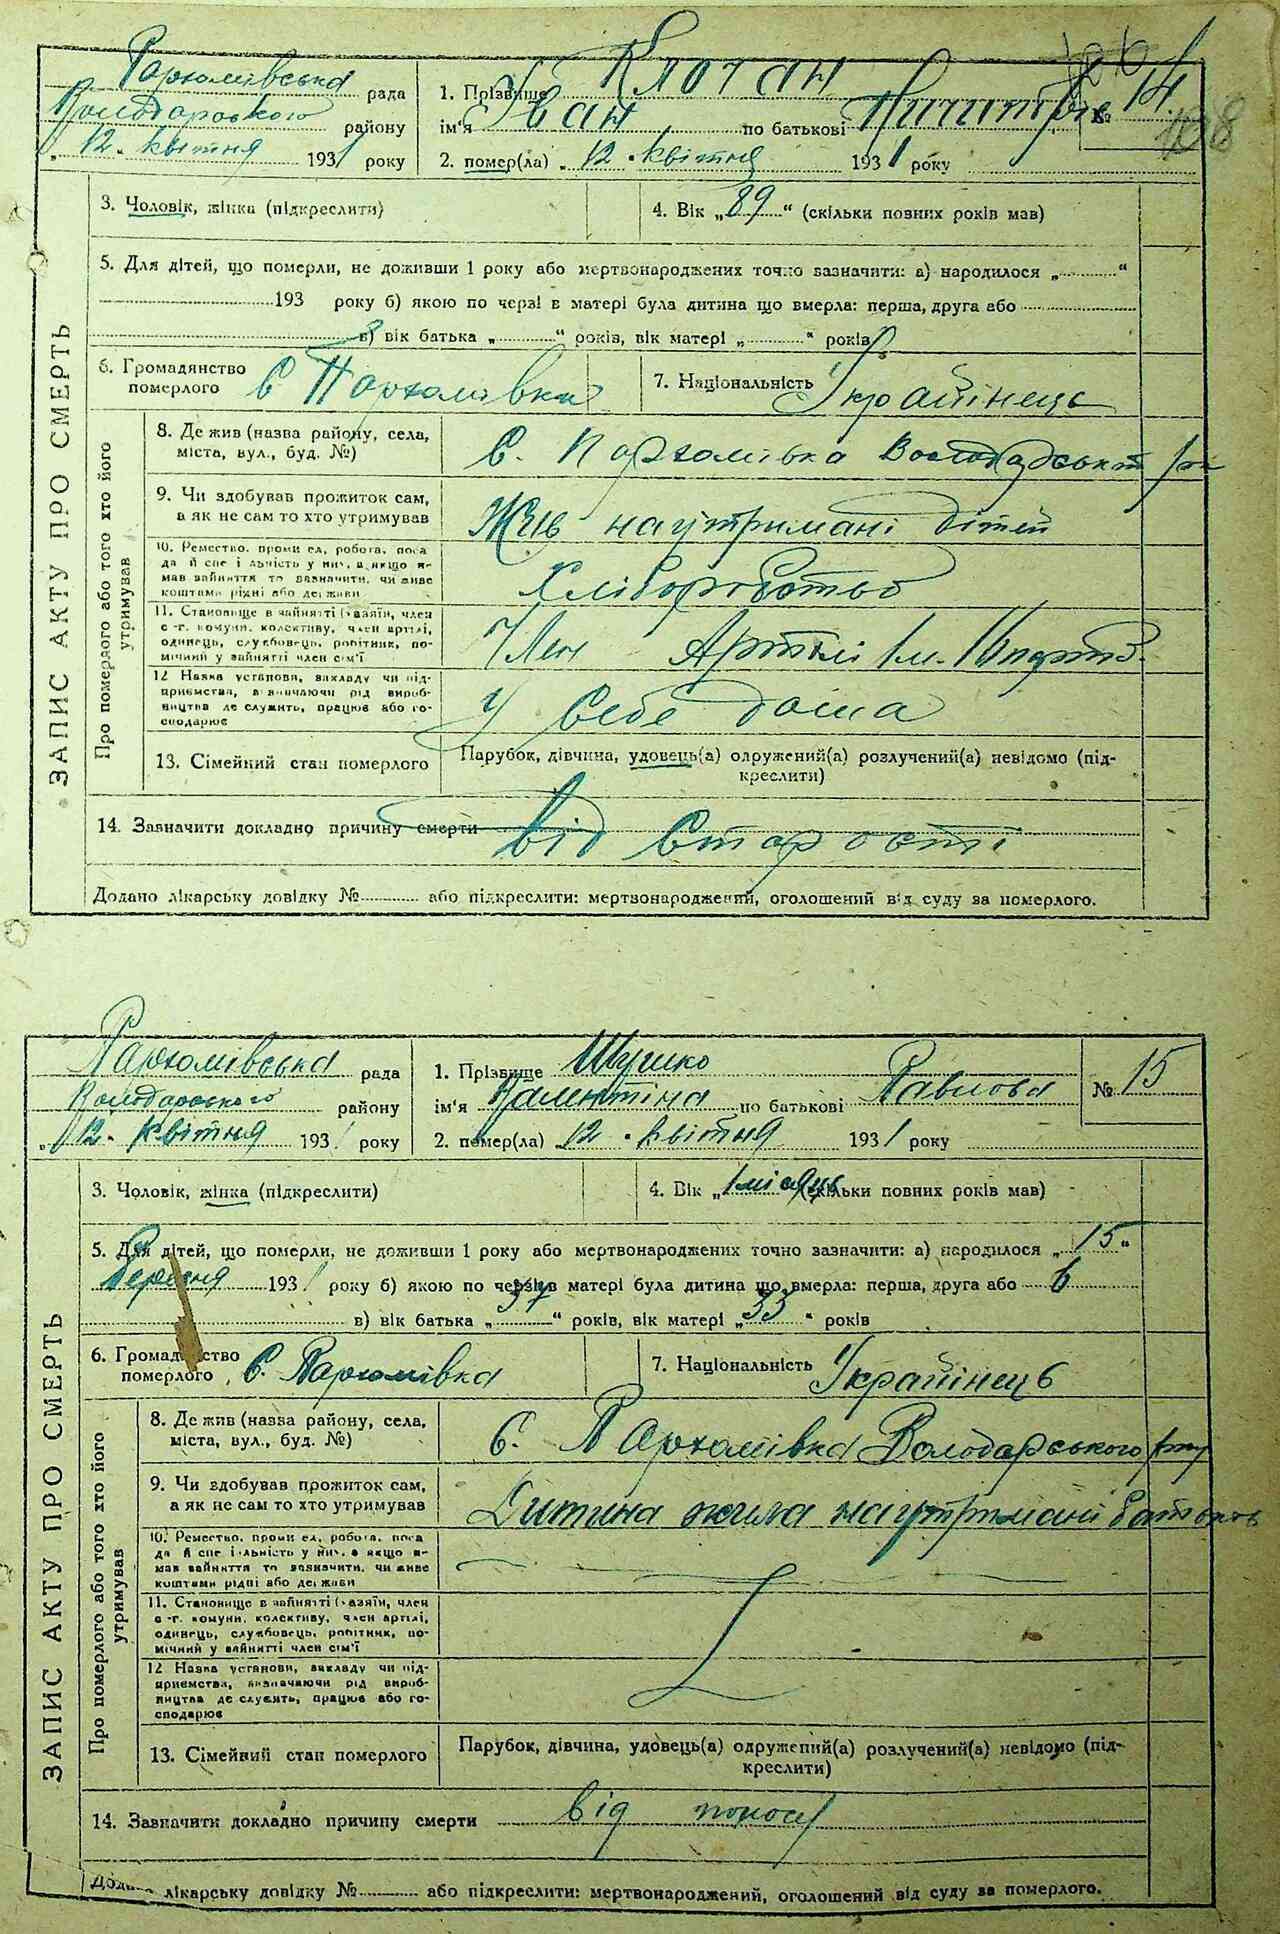 Пархомівська рада
Володарського району
„ 12. квітня 1931 року
1. Прізвище Клочан
ім'я Іван по батькові
2. помер(ла) „ 12 . квітня 1931 року
№ 14
108
ЗАПИС АКТУ ПРО СМЕРТЬ
3. Чоловік, жінка (підкреслити)
4. Вік „ 89 “ (скільки повних років мав)
5. Для дітей, що померли, не доживши 1 року або мертвонароджених точно зазначити: а) народилося „ “
193 року б) якою по черзі в матері була дитина що вмерла: перша, друга або
в) вік батька „ “ років, вік матері „ “ років
6. Громадянство померлого С Пархомівка
7. Національність Українець
Про померлого або того хто його утримував
8. Де жив (назва району, села,
міста, вул., буд. №)
С. Пархомівка Володарськ
9. Чи здобував прожиток сам,
а як не сам то хто утримував
Жив наутримані дітей
10. Ремество, промисел, робота, поса
да й спеціальність у них, а якщо н-
мав зайняття то зазначити, чи живе
коштами рідні або держави
Хліборобство
11. Становище в зайнятті (хазяїн, член
с-г. комуни, колективу, член артілі,
одинець, службовець, робітник, по-
мічний у зайнятті член сім'ї
Член Артілі Ім.
12 Назва установи, закладу чи під-
приємства, зазначаючи рід вироб-
ництва де служить, працює або го-
сподарює
У себе дома
13. Сімейний стан померлого
Парубок, дівчина, удовець(а) одружений(а) розлучений(а) невідомо (під-
креслити)
14. Зазначити докладно причину смерти від старості
Додано лікарську довідку № або підкреслити: мертвонароджений, оголошений від суду за померлого.
Пархомівська рада
Володарського району
„ 12. квітня 1931 року
1. Прізвище
ім'я Валентіна по батькові Павлова
2. помер(ла) 12 . квітня 1931 року
№ 15
ЗАПИС АКТУ ПРО СМЕРТЬ
3. Чоловік, жінка (підкреслити)
4. Вік „ 1 місяць (скільки повних років мав)
5. Для дітей, що померли, не доживши 1 року або мертвонароджених точно зазначити: а) народилося „ 15 “
193 року б) якою по черзі в матері була дитина що вмерла: перша, друга або 6
в) вік батька „ 37 “ років, вік матері „ 33 “ років
6. Громадянство померлого С. Пархомівка
7. Національність Українець
Про померлого або того хто його утримував
8. Де жив (назва району, села,
міста, вул., буд. №)
С. Пархомівка Володарського р-ну
9. Чи здобував прожиток сам,
а як не сам то хто утримував
Дитина жила наутримані батьків
10. Ремество, промисел, робота, поса
да й спеціальність у них, а якщо н-
мав зайняття то зазначити, чи живе
коштами рідні або держави
11. Становище в зайнятті (хазяїн, член
с-г. комуни, колективу, член артілі,
одинець, службовець, робітник, по-
мічний у зайнятті член сім'ї
12 Назва установи, закладу чи під-
приємства, зазначаючи рід вироб-
ництва де служить, працює або го-
сподарює
13. Сімейний стан померлого
Парубок, дівчина, удовець(а) одружений(а) розлучений(а) невідомо (під-
креслити)
14. Зазначити докладно причину смерти від поносу
Додано лікарську довідку № або підкреслити: мертвонароджений, оголошений від суду за померлого.